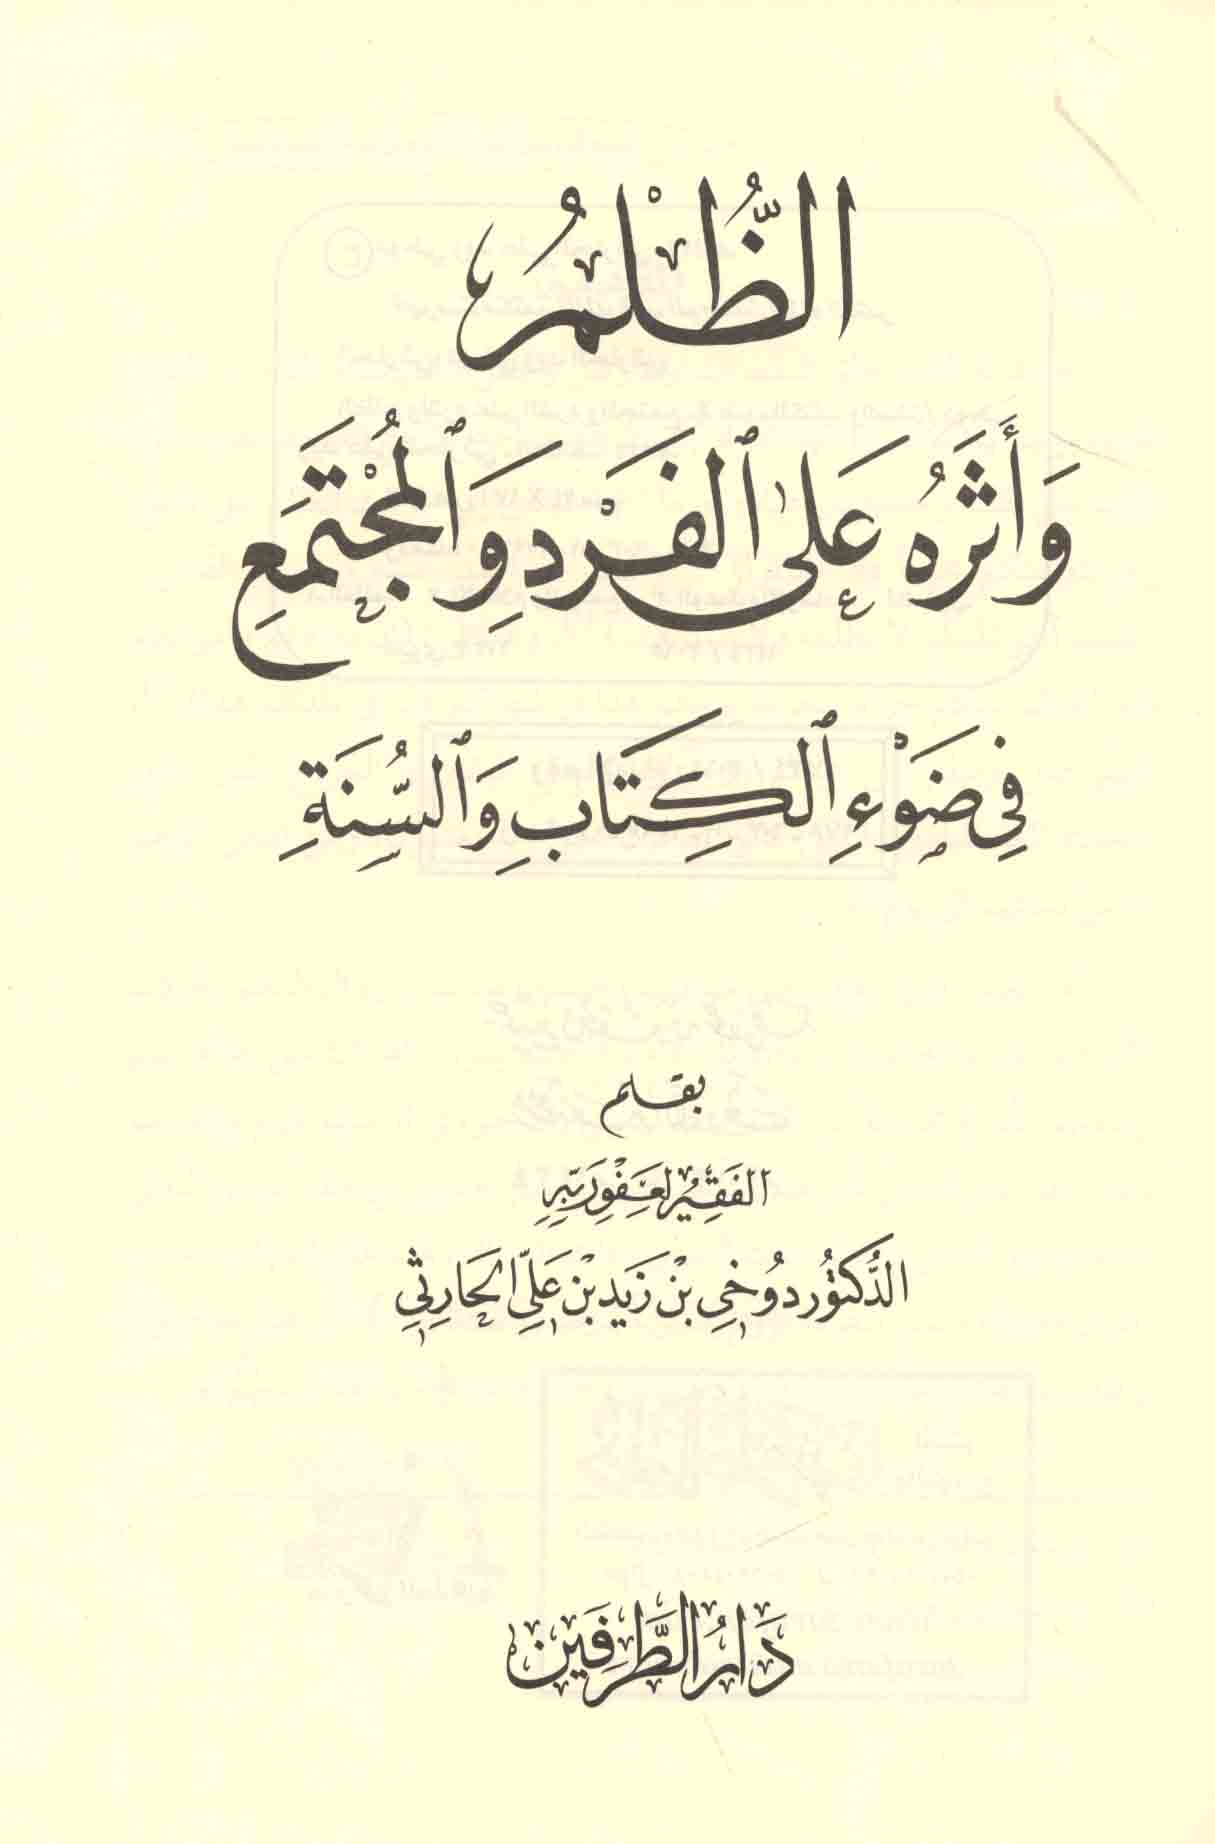 الظُّلْمُ
وَأَثَرُهُ عَلَى ٱلْفَرْدِ وَٱلْمُجْتَمَعِ
فِي ضَوْءِ ٱلْكِتَابِ وَٱلسُّنَّةِ
بقلم
الفَقِيرُ لِعَفْوِ رَبِّهِ
الدُّكتُور دُوخِي بْن زَيد بْن عَلِيّ الحَارِثِي
دَارُ الطَّرَفَين